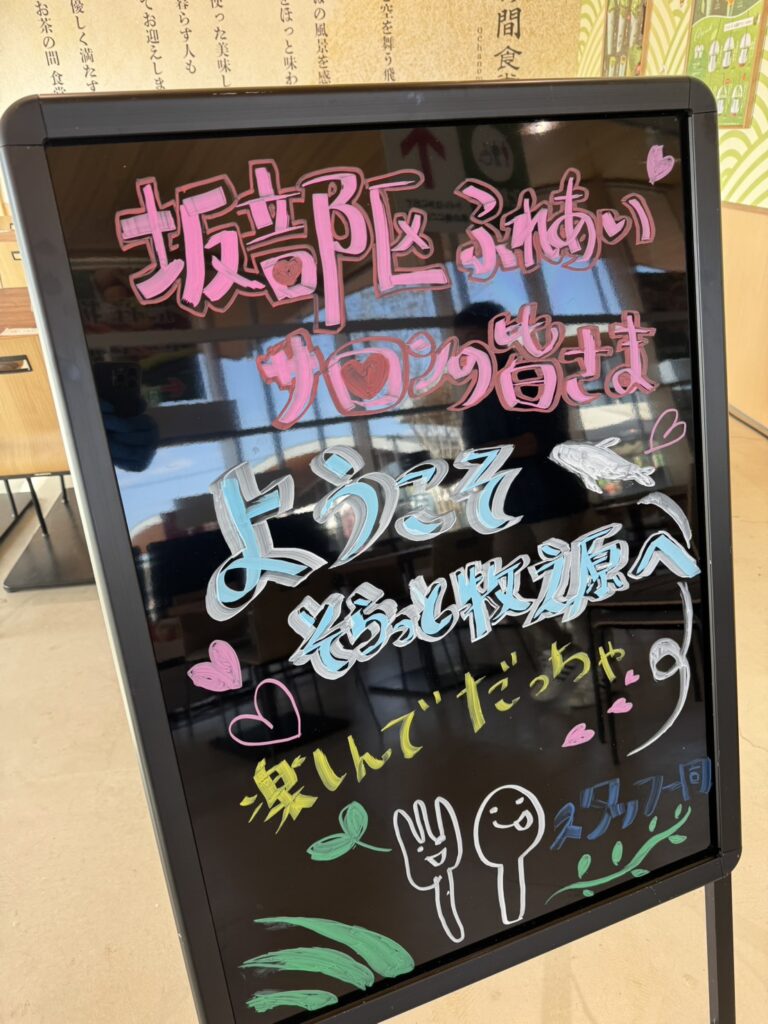 坂部区ふれあい
サロンの皆さま
ようこそ
そらっと牧之原へ
楽しんでだっちゃ
スタッフ一同
間食堂
ochanoma
空を舞う飛
の風景を感
をほっと味わ
使った美味し
暮らす人も
てお迎えしま
優しく満たす
お茶の間 食堂